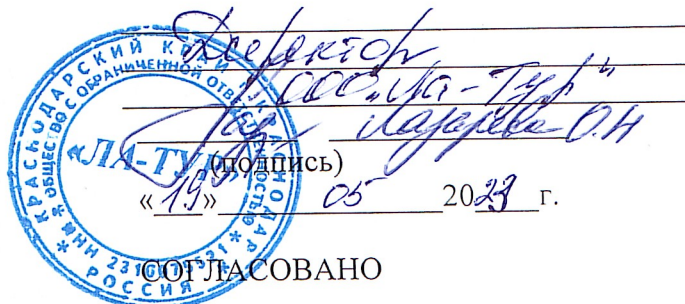 Директор
ООО „Ла-Тур"
Лазарева О.Н
(подпись)
«19» 05 2023 г.
СОГЛАСОВАНО
КРАСНОДАРСКИЙ КРАЙ
ОБЩЕСТВО С ОГРАНИЧЕННОЙ ОТВЕТСТВЕННОСТЬЮ
«ЛА-ТУР»
РОССИЯ